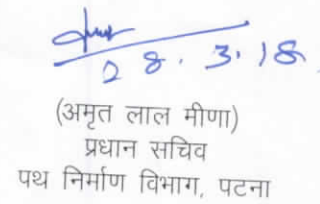 28.3.18
(अमृत लाल मीणा)
प्रधान सचिव
पथ निर्माण विभाग, पटना